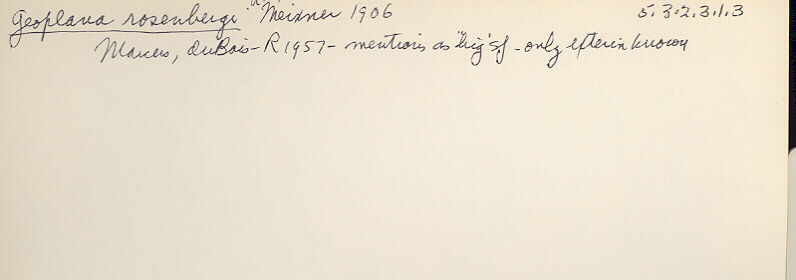 Geoplana rosenbergi Meixner 1906 5.3.2.3.1.3
Marcus, duBois-R 1957 - mentions as "big" sp - only extern known